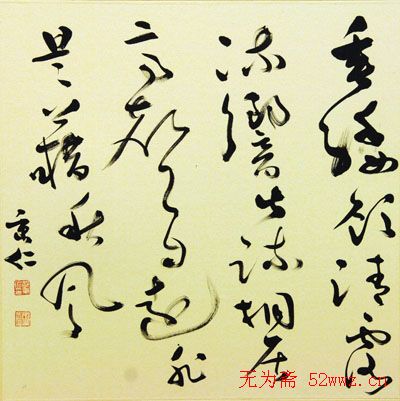 垂緌飲清露
流響出疏桐居
高聲自遠非
是藉秋風
仁
无为斋 52wwz.cn